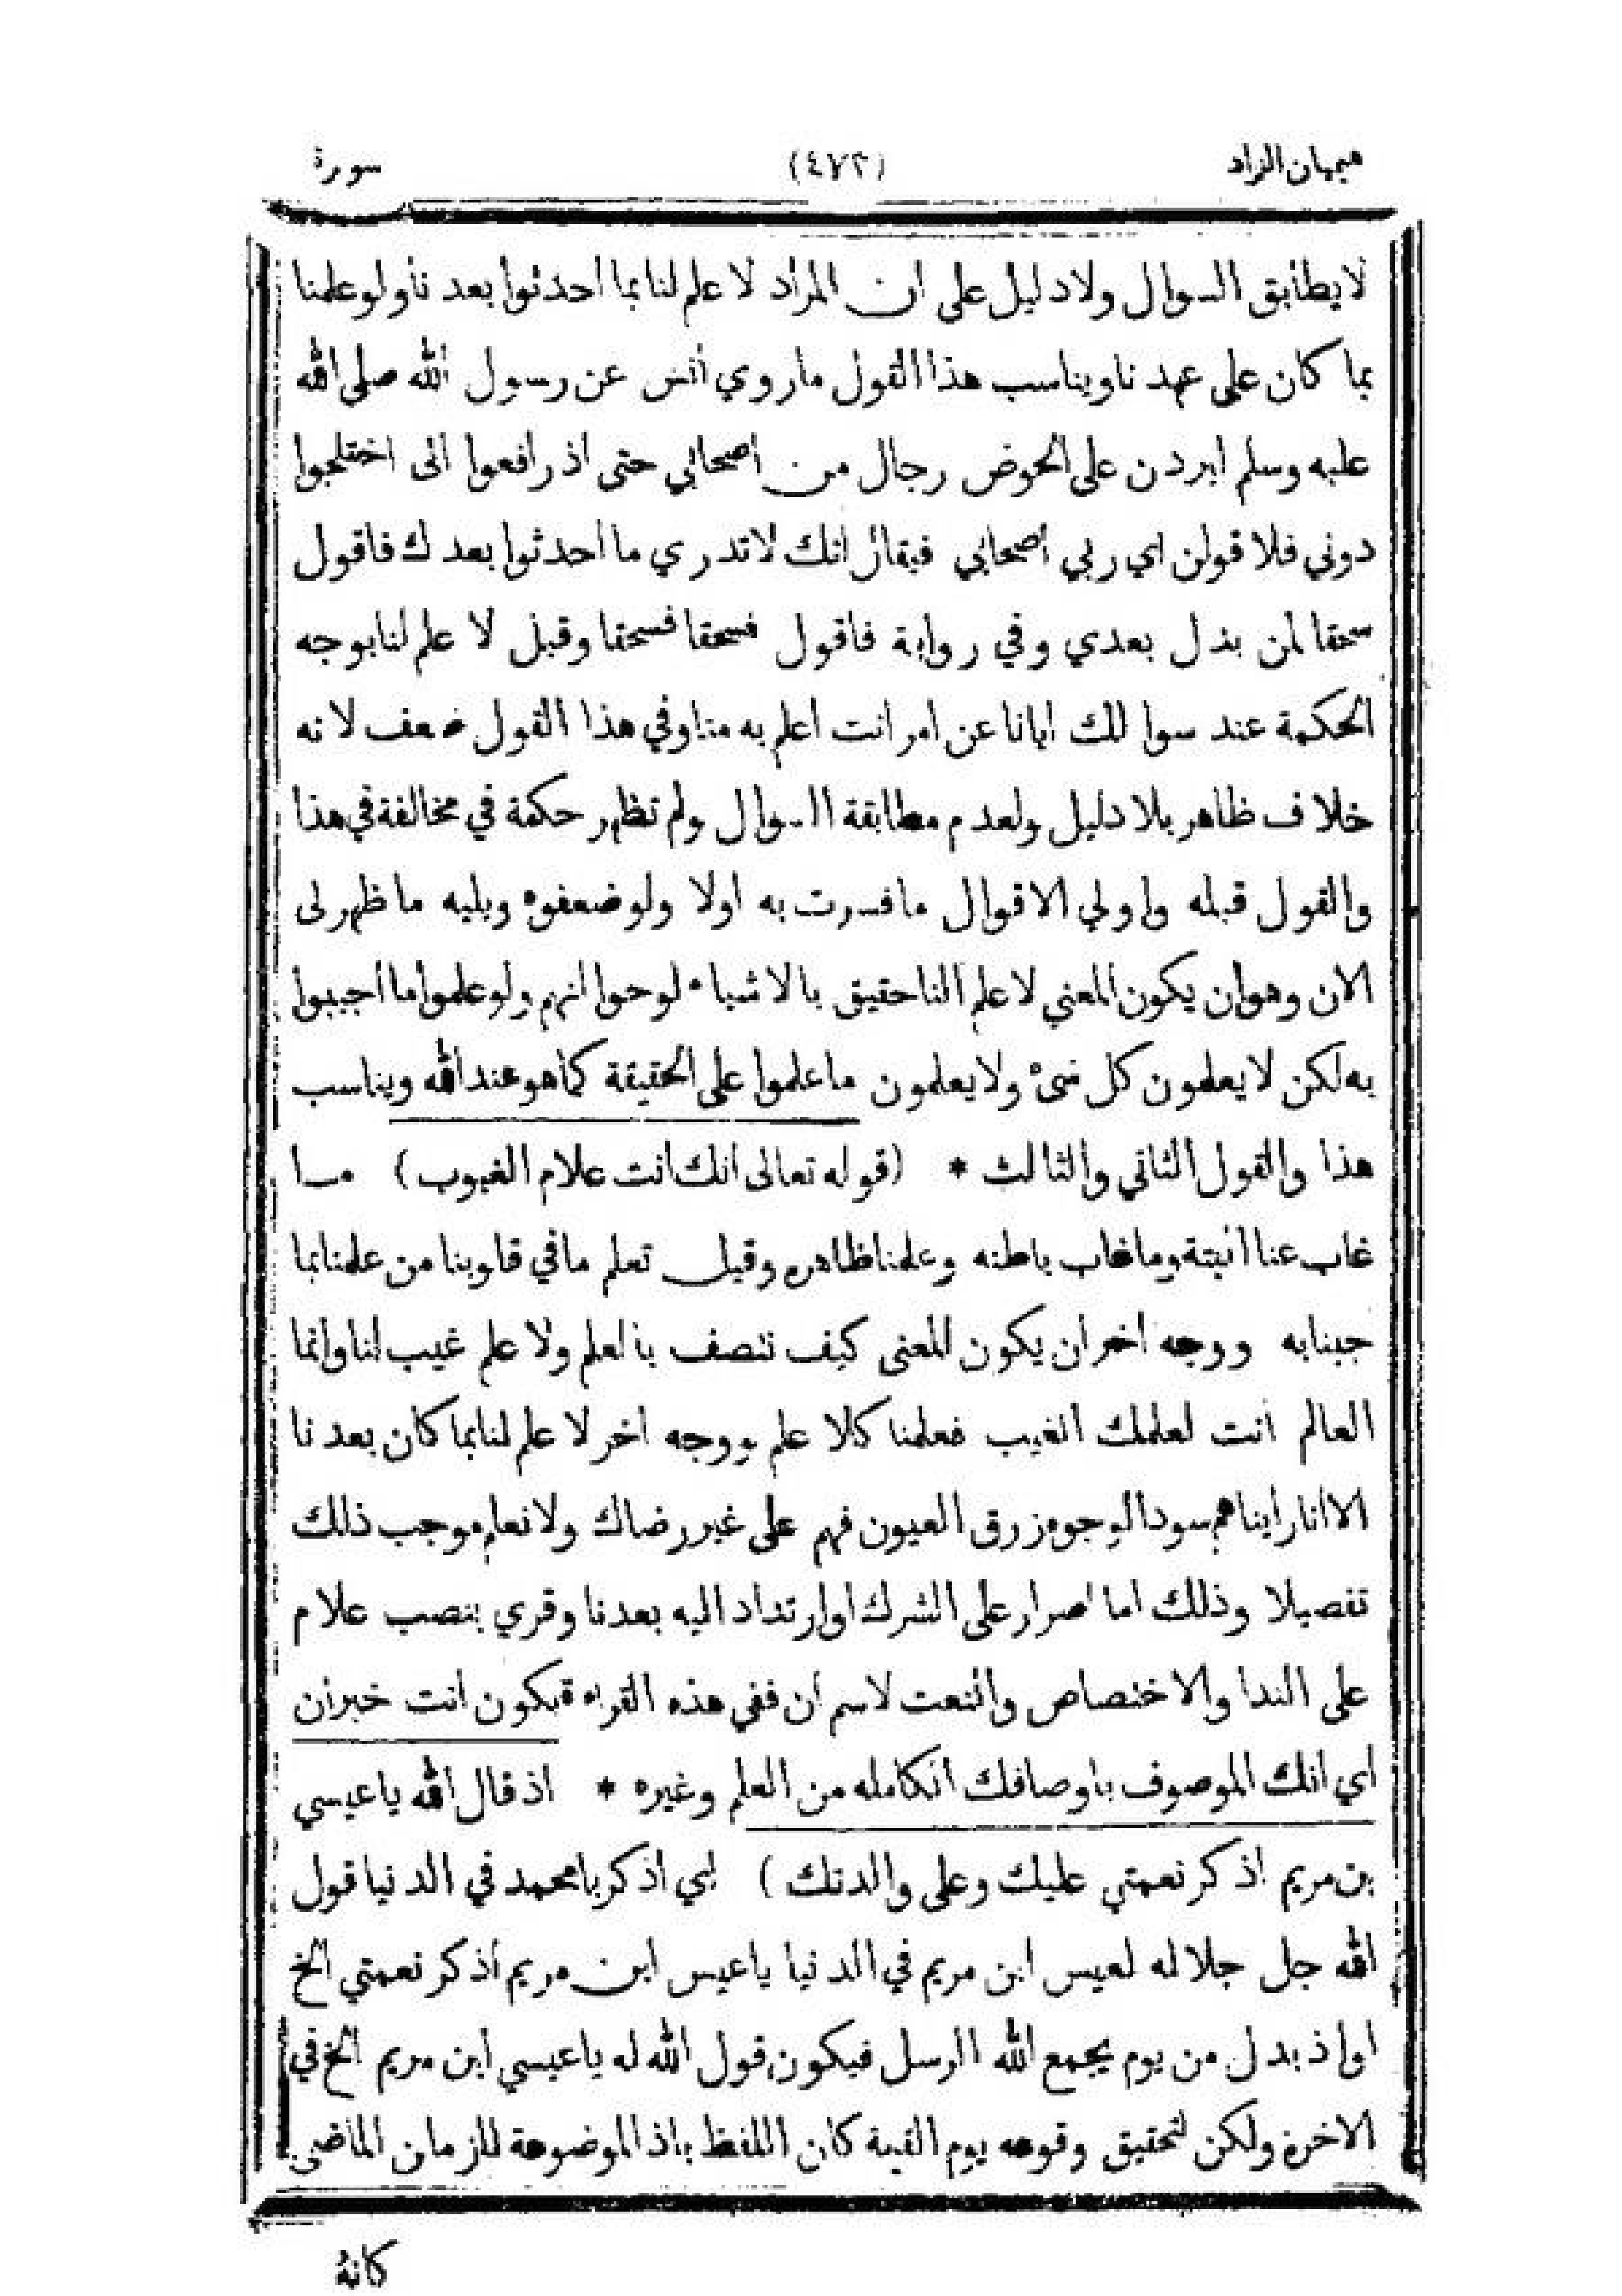 هيميان الزاد (٤٧٢) سورة
لا يطابق السوال ولا دليل على ان المراد لا علم لنا بما احدثوا بعدنا ولو علمنا
بما كان على عهدنا ويناسب هذا القول ما روي انس عن رسول الله صلى الله
عليه وسلم ليردن على الحوض رجال من اصحابي حتى اذ رافعوا الى اختلجوا
دوني فلا قولن اي ربي اصحابي فيقال انك لا تدري ما احدثوا بعدك فاقول
سحقا لمن بدل بعدي وفي رواية فاقول فسحقا فسحقا وقيل لا علم لنا بوجه
الحكمة عند سوالك ايانا عن امر انت اعلم به منا وفي هذا القول ضعف لانه
خلاف ظاهر بلا دليل ولعدم مطابقة السوال ولم تظهر حكمة في مخالفة في هذا
والقول قبله واولي الاقوال ما فسرت به اولا ولو ضعفوه ويليه ما ظهر لى
الان وهو ان يكون المعني لا علم لنا حقيق بالاشياء لوحوا انهم ولو علموا ما اجيبوا
به لكن لا يعلمون كل شئ ولا يعلمون ما علموا على الحقيقة كما هو عند الله ويناسب
هذا والقول الثاني والثالث * (قوله تعالى انك انت علام الغيوب) ما
غاب عنا البتة وما غاب باطنه وعلمنا ظاهره وقيل تعلم ما في قلوبنا من علمنا بما
جبنا به ووجه اخر ان يكون المعنى كيف نتصف بالعلم ولا علم غيب لنا وانما
العالم انت لعلمك الغيب فعلمنا كلا علم ووجه اخر لا علم لنا بما كان بعدنا
الا انا رايناهم سود الوجوه زرق العيون فهم على غير رضاك ولا نعلم موجب ذلك
تفصيلا وذلك اما اصرار على الشرك او ارتداد اليه بعدنا وقري بنصب علام
على الندا والاختصاص والنعت لاسم ان ففي هذه القراءة يكون انت خبر ان
اي انك الموصوف باوصافك الكامله من العلم وغيره * اذ قال الله يا عيسي
بن مريم اذكر نعمتي عليك وعلى والدتك) اي اذكر يا محمد في الدنيا قول
الله جل جلاله لعيس ابن مريم في الدنيا يا عيس ابن مريم اذكر نعمتي الخ
او اذ بدل من يوم يجمع الله الرسل فيكون قول الله له يا عيسي ابن مريم الخ في
الاخرة ولكن لتحقيق وقوعه يوم القيمة كان اللفظ باذ الموضوعة للزمان الماضي
كانه